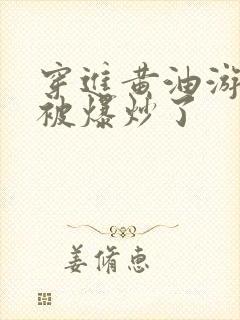 穿进黄油游
被爆炒了
姜脩惠